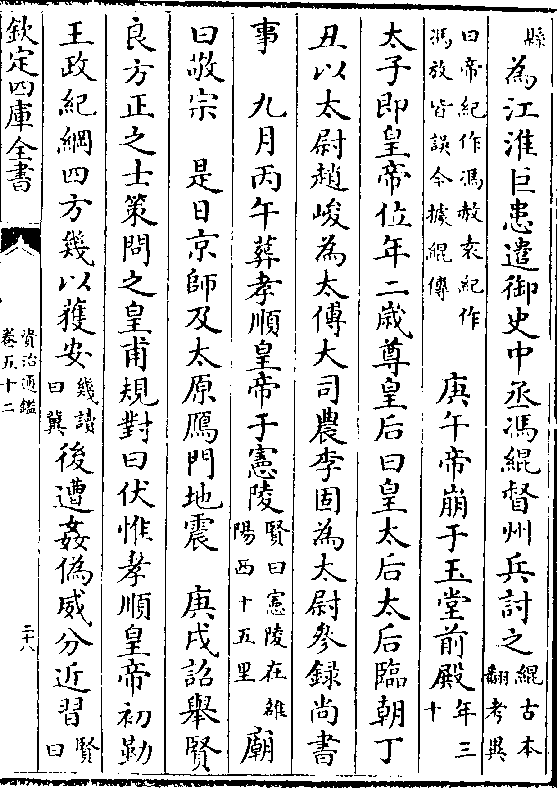 縣為江淮巨患遣御史中丞馮緄督州兵討之緄古本翻考異
曰帝紀作馮赦袁紀作馮放皆誤今據緄傳 庚午帝崩于玉堂前殿年三十
太子即皇帝位年二歲尊皇后曰皇太后太后臨朝丁
丑以太尉趙峻為太傅大司農李固為太尉參錄尚書
事 九月丙午葬孝順皇帝于憲陵賢曰憲陵在雒陽西十五里廟
曰敬宗 是日京師及太原鴈門地震 庚戌詔舉賢
良方正之士策問之皇甫規對曰伏惟孝順皇帝初勤
王政紀綱四方幾以獲安幾讀曰冀後遭姦偽威分近習賢曰
欽定四庫全書
資治通鑑
卷五十二
二十八